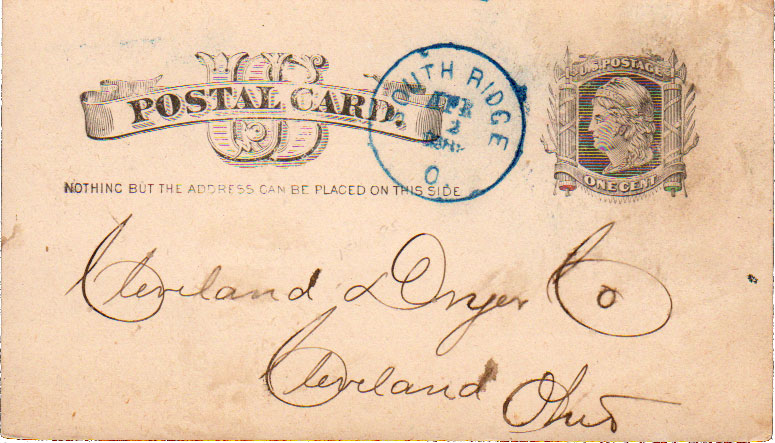 US
POSTAL CARD.
NOTHING BUT THE ADDRESS CAN BE PLACED ON THIS SIDE
SOUTH RIDGE
APR
2
O
U.S. POSTAGE
ONE CENT
Cleveland & Dryer Co
Cleveland Ohio